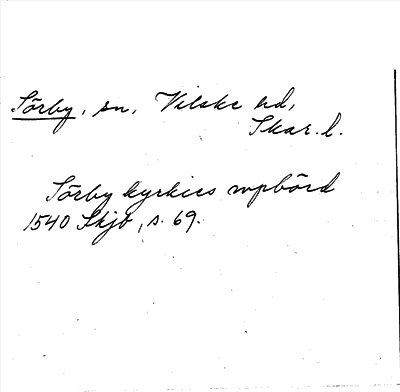 Sörby, sn, Vilske hd,
Skar. l.
Sörby kyrkies vpbörd
1540 Skjb, s. 69.